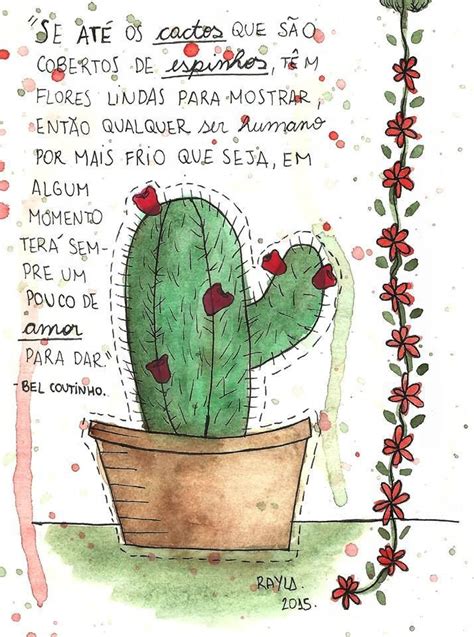 "SE ATÉ OS cactos QUE SÃO
COBERTOS DE espinhos, TÊM
FLORES LINDAS PARA MOSTRAR,
ENTÃO QUALQUER ser humano
POR MAIS FRIO QUE SEJA, EM
ALGUM
MOMENTO
TERÁ SEM-
PRE UM
POUCO DE
amor
PARA DAR."
- BEL COUTINHO.
RAYLA
2015.